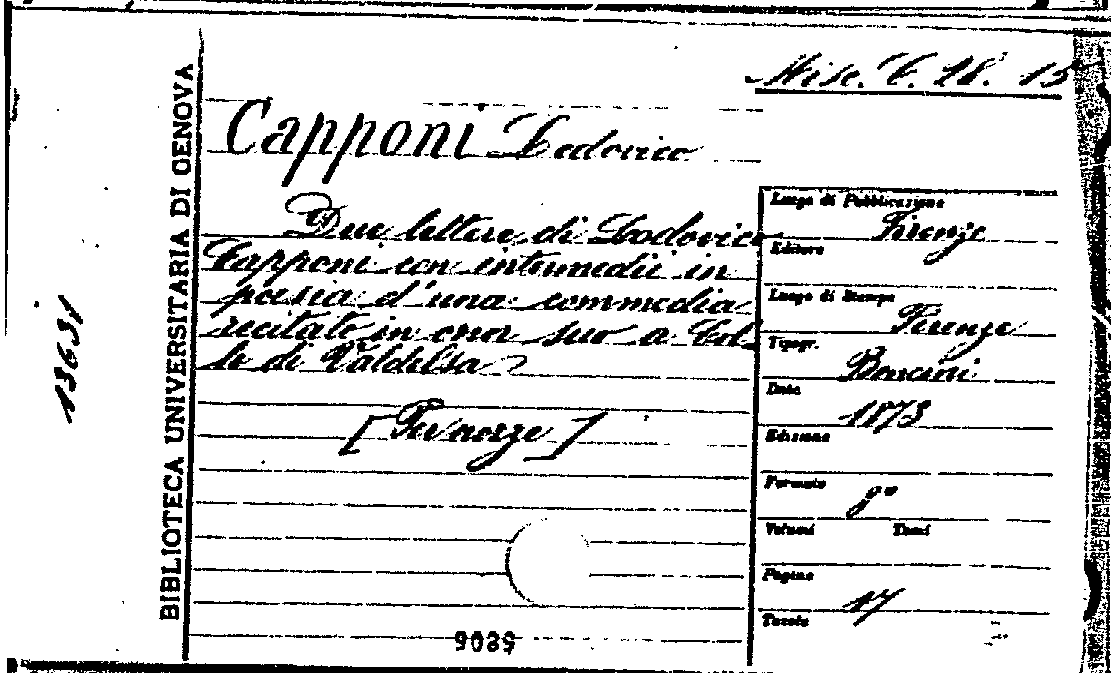 Misc. C. 28. 15
Capponi Lodovico
Due lettere di Lodovico
Capponi con intermedii in
poesia d'una commedia
recitate in onor suo a Col-
le di Valdelsa
[Per nozze]
Luogo di Pubblicazione
Firenze
Editore
Luogo di Stampa
Firenze
Tipogr.
Boncini
Data
1873
Edizione
Formato
8°
Volumi Tomi
Pagine
17
Tavole
BIBLIOTECA UNIVERSITARIA DI GENOVA
13631